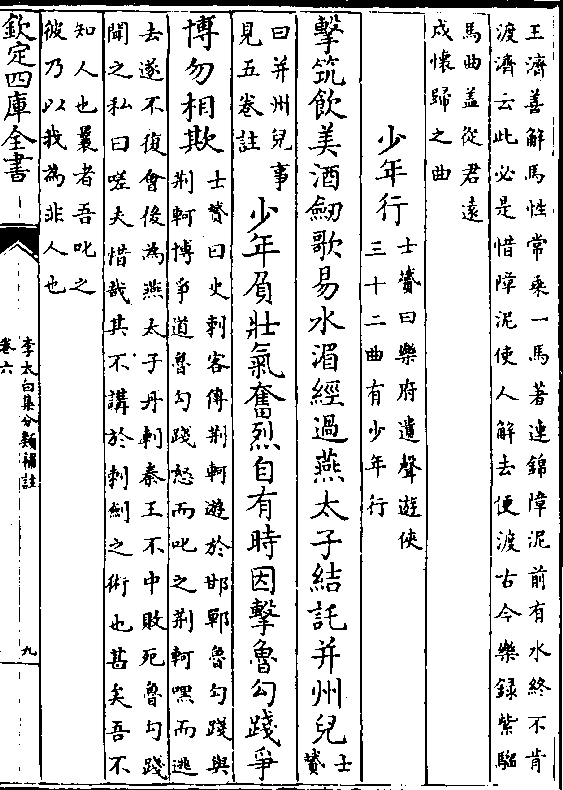 王濟善解馬性常乘一馬著連錦障泥前有水終不肯
渡濟云此必是惜障泥使人解去便渡古今樂録紫騮
馬曲盖從君遠
戍懷歸之曲
少年行
士贇曰樂府遺聲遊俠
三十二曲有少年行
擊筑飲美酒劒歌易水湄經過燕太子結託并州兒
士贇
曰并州兒事
見五卷註
少年負壯氣奮烈自有時因擊魯勾踐爭
博勿相欺
士贇曰史刺客傳荆軻遊於邯鄲魯勾踐與
荆軻博爭道魯勾踐怒而叱之荆軻嘿而逃
去遂不復會後為燕太子丹刺秦王不中敗死魯勾踐
聞之私曰嗟夫惜哉其不講於刺劒之術也甚矣吾不
知人也曩者吾叱之
彼乃以我為非人也
欽定四庫全書
李太白集分類補註
卷六
九